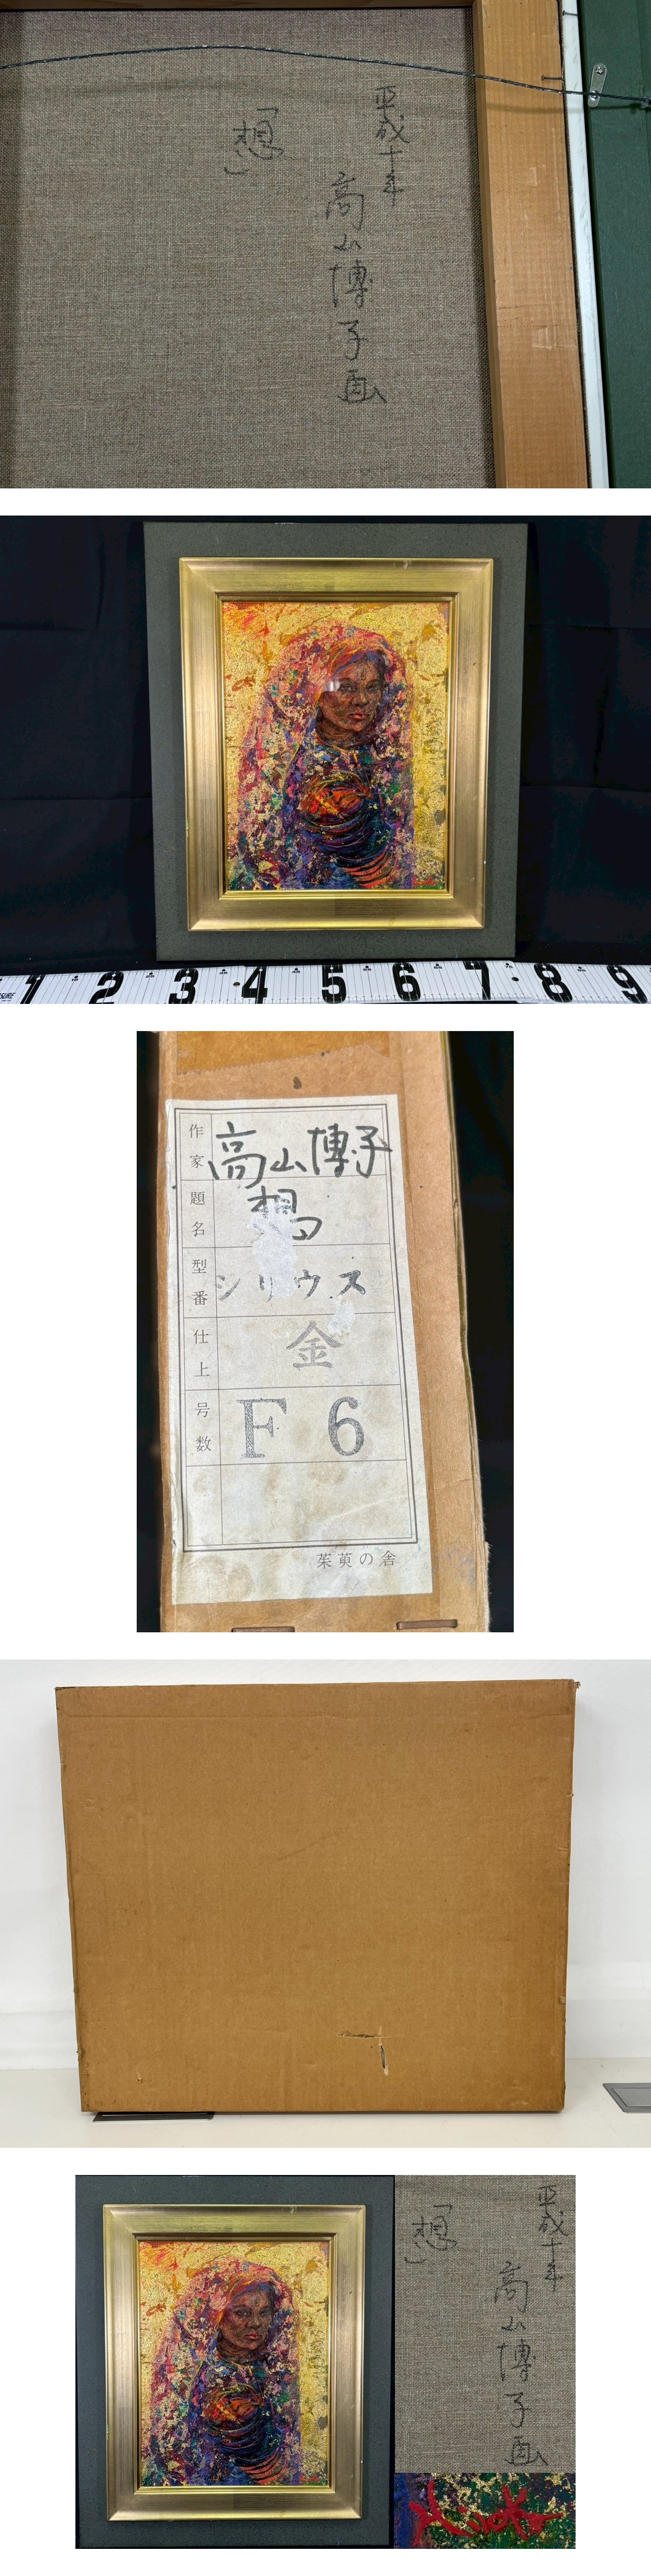 平成十年
高山博子画
「想」
SURE 1 2 3 4 5 6 7 8 9
作家 高山博子
題名 想
型番 シリウス
仕上 金
号数 F 6
茱萸の舎
平成十年
高山博子画
「想」
Hiroko